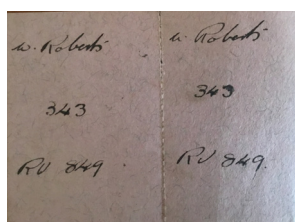 W. Roberts
343
RV 849
W. Roberts
343
RV 849.